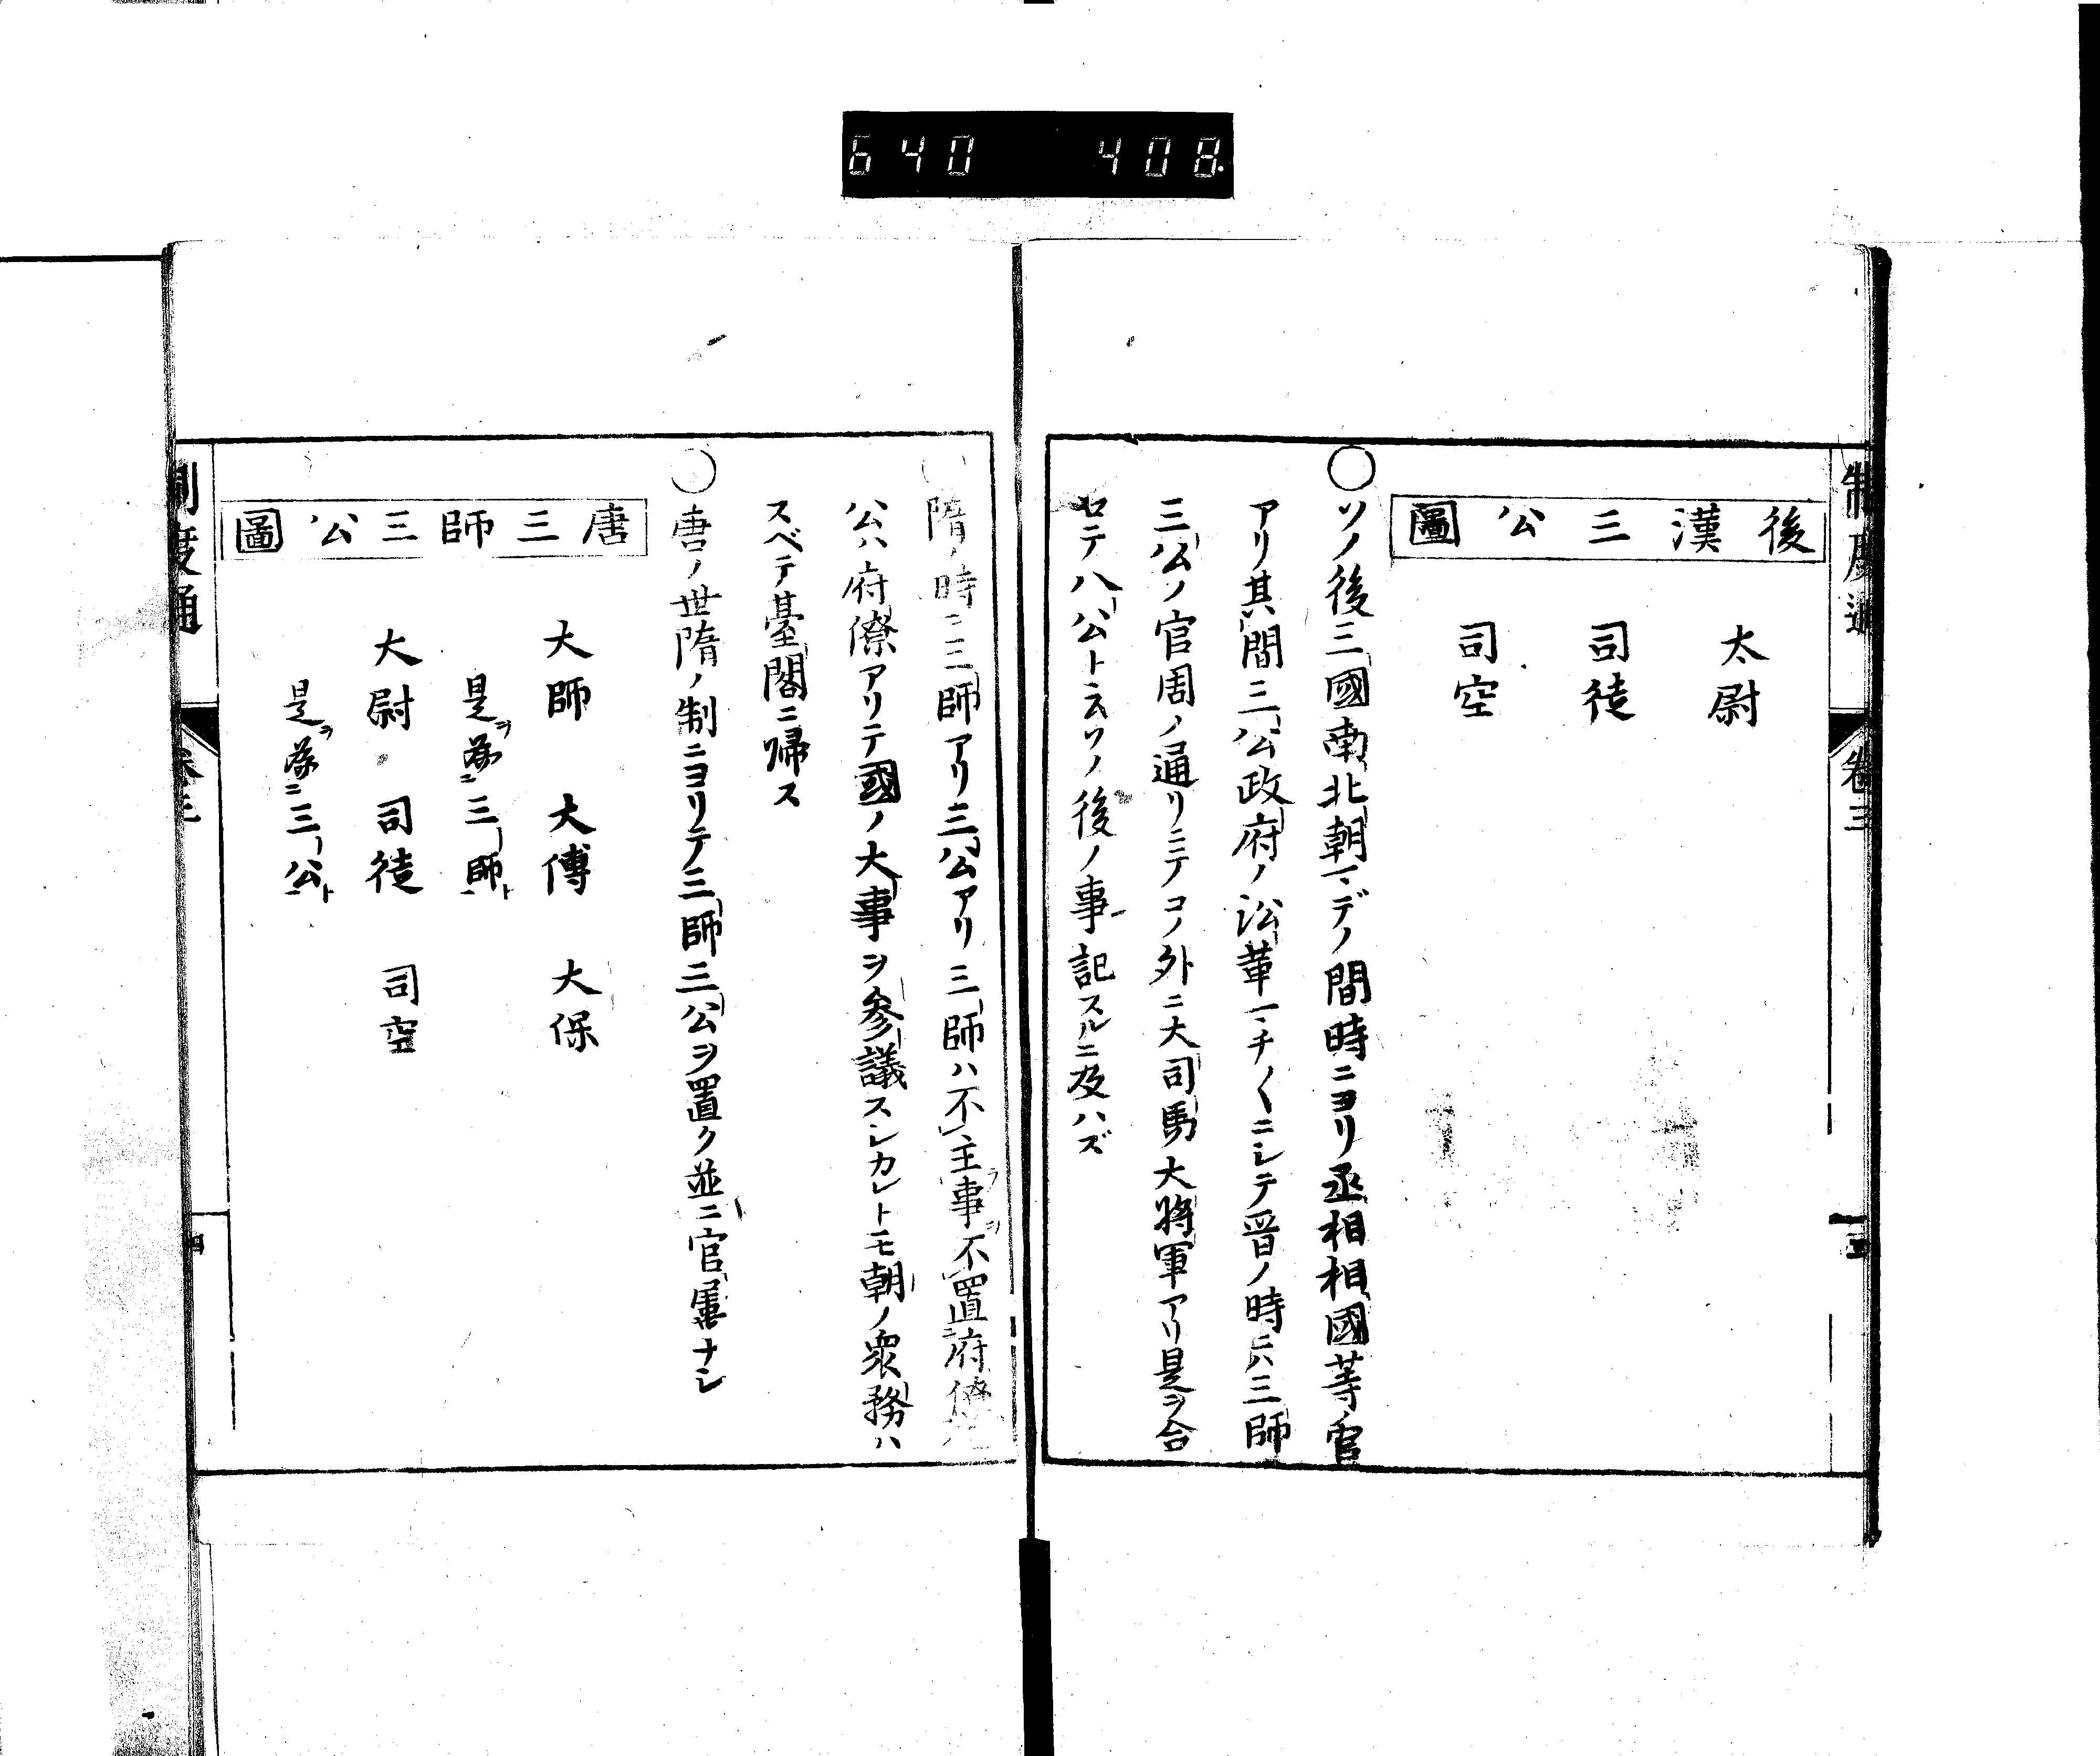 640 408.
制度通 卷三
後漢三公圖
太尉
司徒
司空
○ソノ後三國南北朝マデノ間時ニヨリ丞相相國等ノ官
アリ其間三公政府ノ沿革マチ〱ニシテ晉ノ時ニハ三師
三公ノ官周ノ通リニテコノ外ニ大司馬大將軍アリ是ヲ合
セテ八公ト云ソノ後ノ事記スルニ及ハズ
○隋ノ時ニ三師アリ三公アリ三師ハ不主事不置府僚
公ハ府僚アリテ國ノ大事ヲ参議スシカレトモ朝ノ衆務ハ
スベテ臺閣ニ帰ス
○唐ノ世隋ノ制ニヨリテ三師三公ヲ置ク並ニ官屬ナシ
唐三師三公圖
大師 大傅 大保
是ヲ為ニ三師ト
大尉 司徒 司空
是ヲ為ニ三公ト
制度通 卷三 四